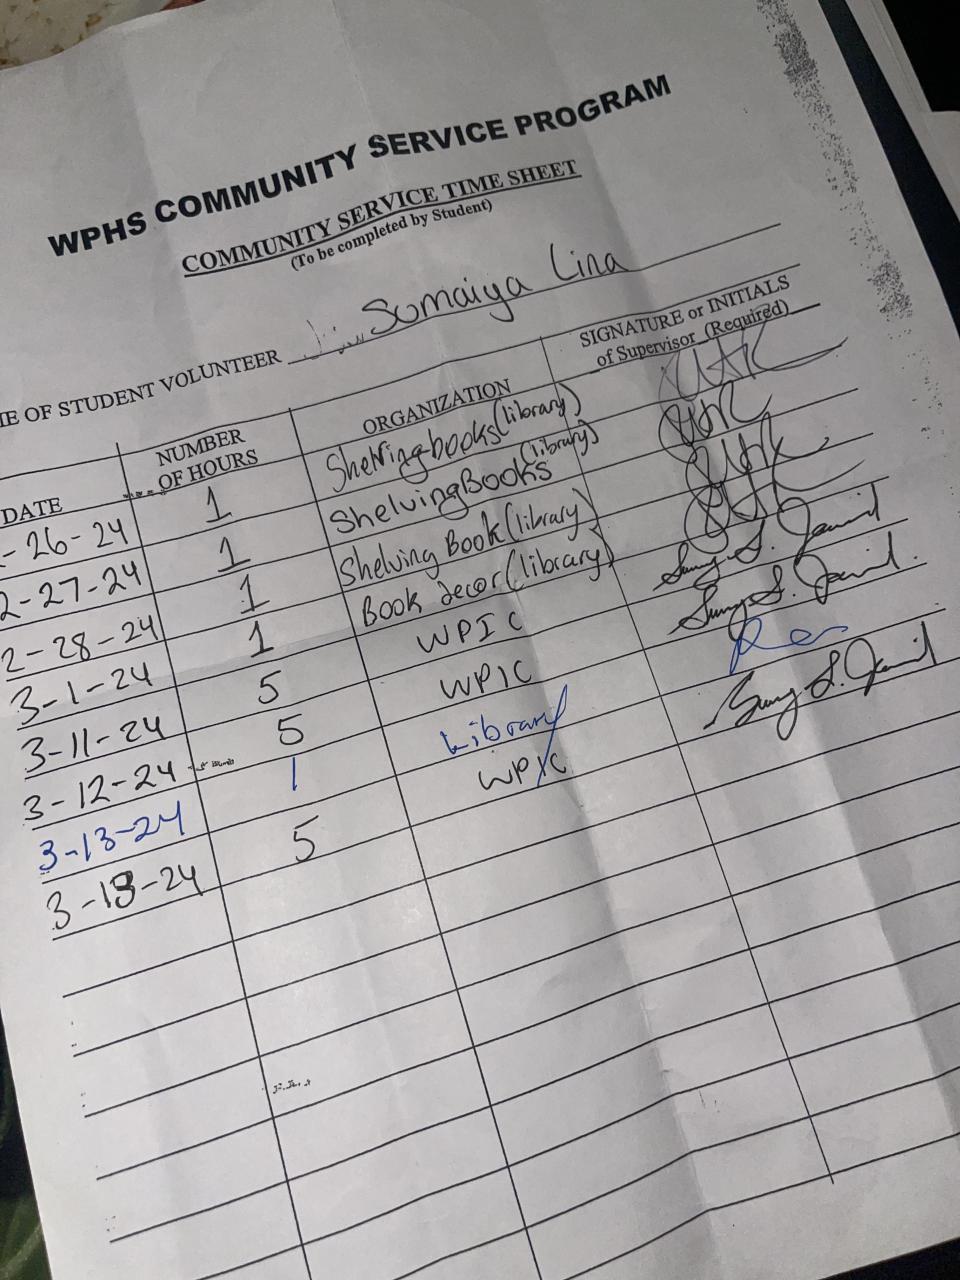 WPHS COMMUNITY SERVICE PROGRAM
COMMUNITY SERVICE TIME SHEET
(To be completed by Student)
ME OF STUDENT VOLUNTEER Sumaiya Lina
DATE NUMBER OF HOURS ORGANIZATION SIGNATURE or INITIALS of Supervisor (Required)
-26-24 1 Shelving books (library)
2-27-24 1 Shelving Books (library)
2-28-24 1 Shelving Book (library)
3-1-24 1 Book decor (library)
3-11-24 5 WPIC
3-12-24 5 WPIC
3-13-24 1 Library
3-18-24 5 WPIC